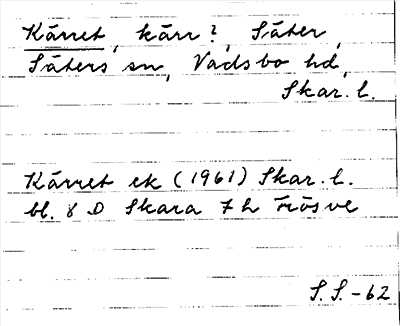 Kärret, kärr?, Säter,
Säters sn, Vadsbo hd,
Skar. l.
Kärret ek (1961) Skar. l.
bl. 8 D Skara 7 h Frösve
S. S. -62